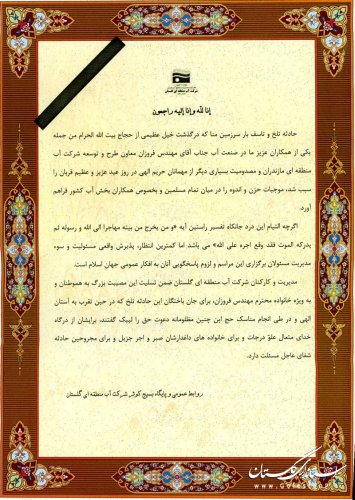 شرکت آب منطقه ای گلستان
إنا للّه و إنا إلیه راجعون
حادثه تلخ و تاسف بار سرزمین منا که درگذشت خیل عظیمی از حجاج بیت الله الحرام من جمله
یکی از همکاران عزیز ما در صنعت آب جناب آقای مهندس فروزان معاون طرح و توسعه شرکت آب
منطقه ای مازندران و مصدومیت بسیاری دیگر از مهمانان حریم الهی در روز عید عزیز و عظیم قربان را
سبب شد، موجبات حزن و اندوه را در میان تمام مسلمین و بخصوص همکاران بخش آب کشور فراهم
آورد.
اگرچه التیام این درد جانکاه تفسیر راستین آیه «و من یخرج من بیته مهاجرا الی الله و رسوله ثم
یدرکه الموت فقد وقع اجره علی الله» می باشد اما کمترین انتظار، پذیرش واقعی مسئولیت و سوء
مدیریت مسئولان برگزاری این مراسم و لزوم پاسخگویی آنان به افکار عمومی جهان اسلام است.
مدیریت و کارکنان شرکت آب منطقه ای گلستان ضمن تسلیت این مصیبت بزرگ به هموطنان و
به ویژه خانواده محترم مهندس فروزان، برای جان باختگان این حادثه تلخ که در حین تقرب به آستان
الهی و در طی انجام مناسک حج این چنین مظلومانه دعوت حق را لبیک گفتند، برایشان از درگاه
خدای متعال علوّ درجات و برای خانواده های داغدارشان صبر و اجر جزیل و برای مجروحین حادثه
شفای عاجل مسئلت دارد.
روابط عمومی و پایگاه بسیج کوثر شرکت آب منطقه ای گلستان